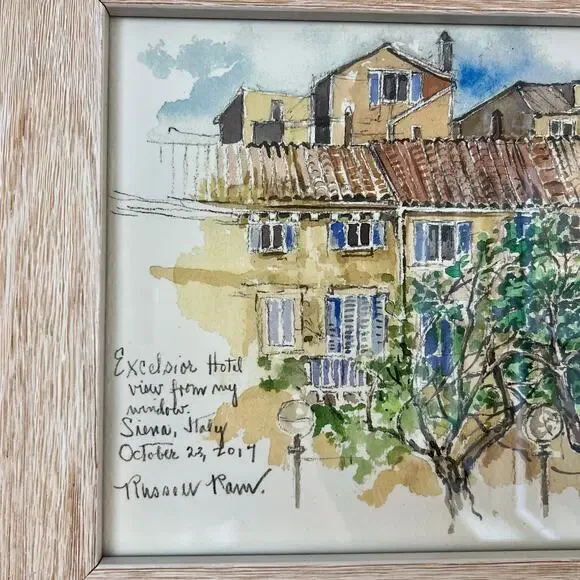 Excelsior Hotel
view from my
window.
Siena, Italy
October 23, 2017
Russell